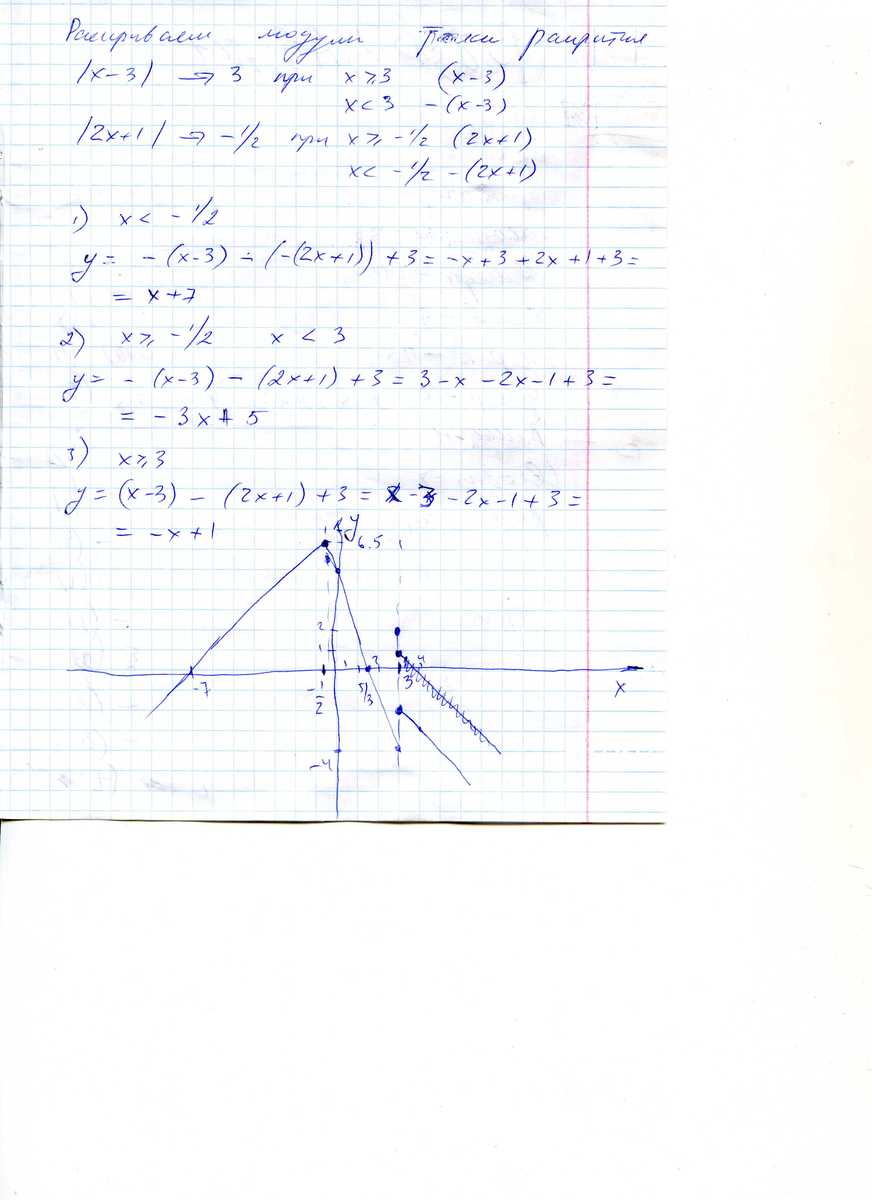 Раскрываем модули Точки раскрытия
|x-3| → 3 при x ⩾ 3 (x-3)
x < 3 -(x-3)
|2x+1| → -1/2 при x ⩾ -1/2 (2x+1)
x < -1/2 -(2x+1)
1) x < -1/2
y = -(x-3) - (-(2x+1)) + 3 = -x + 3 + 2x + 1 + 3 =
= x + 7
2) x ⩾ -1/2 x < 3
y = -(x-3) - (2x+1) + 3 = 3 - x - 2x - 1 + 3 =
= -3x + 5
3) x ⩾ 3
y = (x-3) - (2x+1) + 3 = x - 3 - 2x - 1 + 3 =
= -x + 1
y
6.5
2
1
-7
-1/2
1
5/3
2
3
4
x
-4